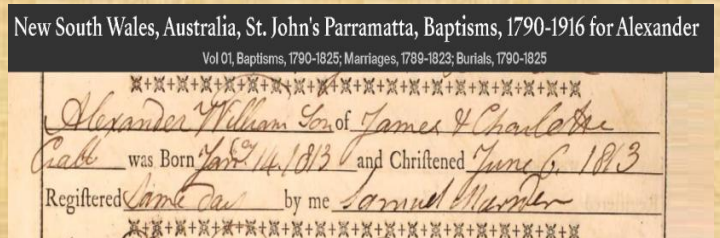 New South Wales, Australia, St. John's Parramatta, Baptisms, 1790-1916 for Alexander
Vol 01, Baptisms, 1790-1825; Marriages, 1789-1823; Burials, 1790-1825
Alexander William Son of James & Charlotte
Crabb was Born Jany. 14. 1813 and Christened June 6. 1813
Registered Same day by me Samuel Marsden